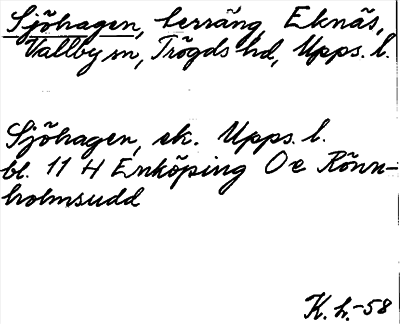 Sjöhagen, terräng, Eknäs,
Vallby sn, Trögds hd, Upps. l.
Sjöhagen, ek. Upps. l.
bl. 11 H Enköping O e Rönn-
holmsudd
K. h. -58